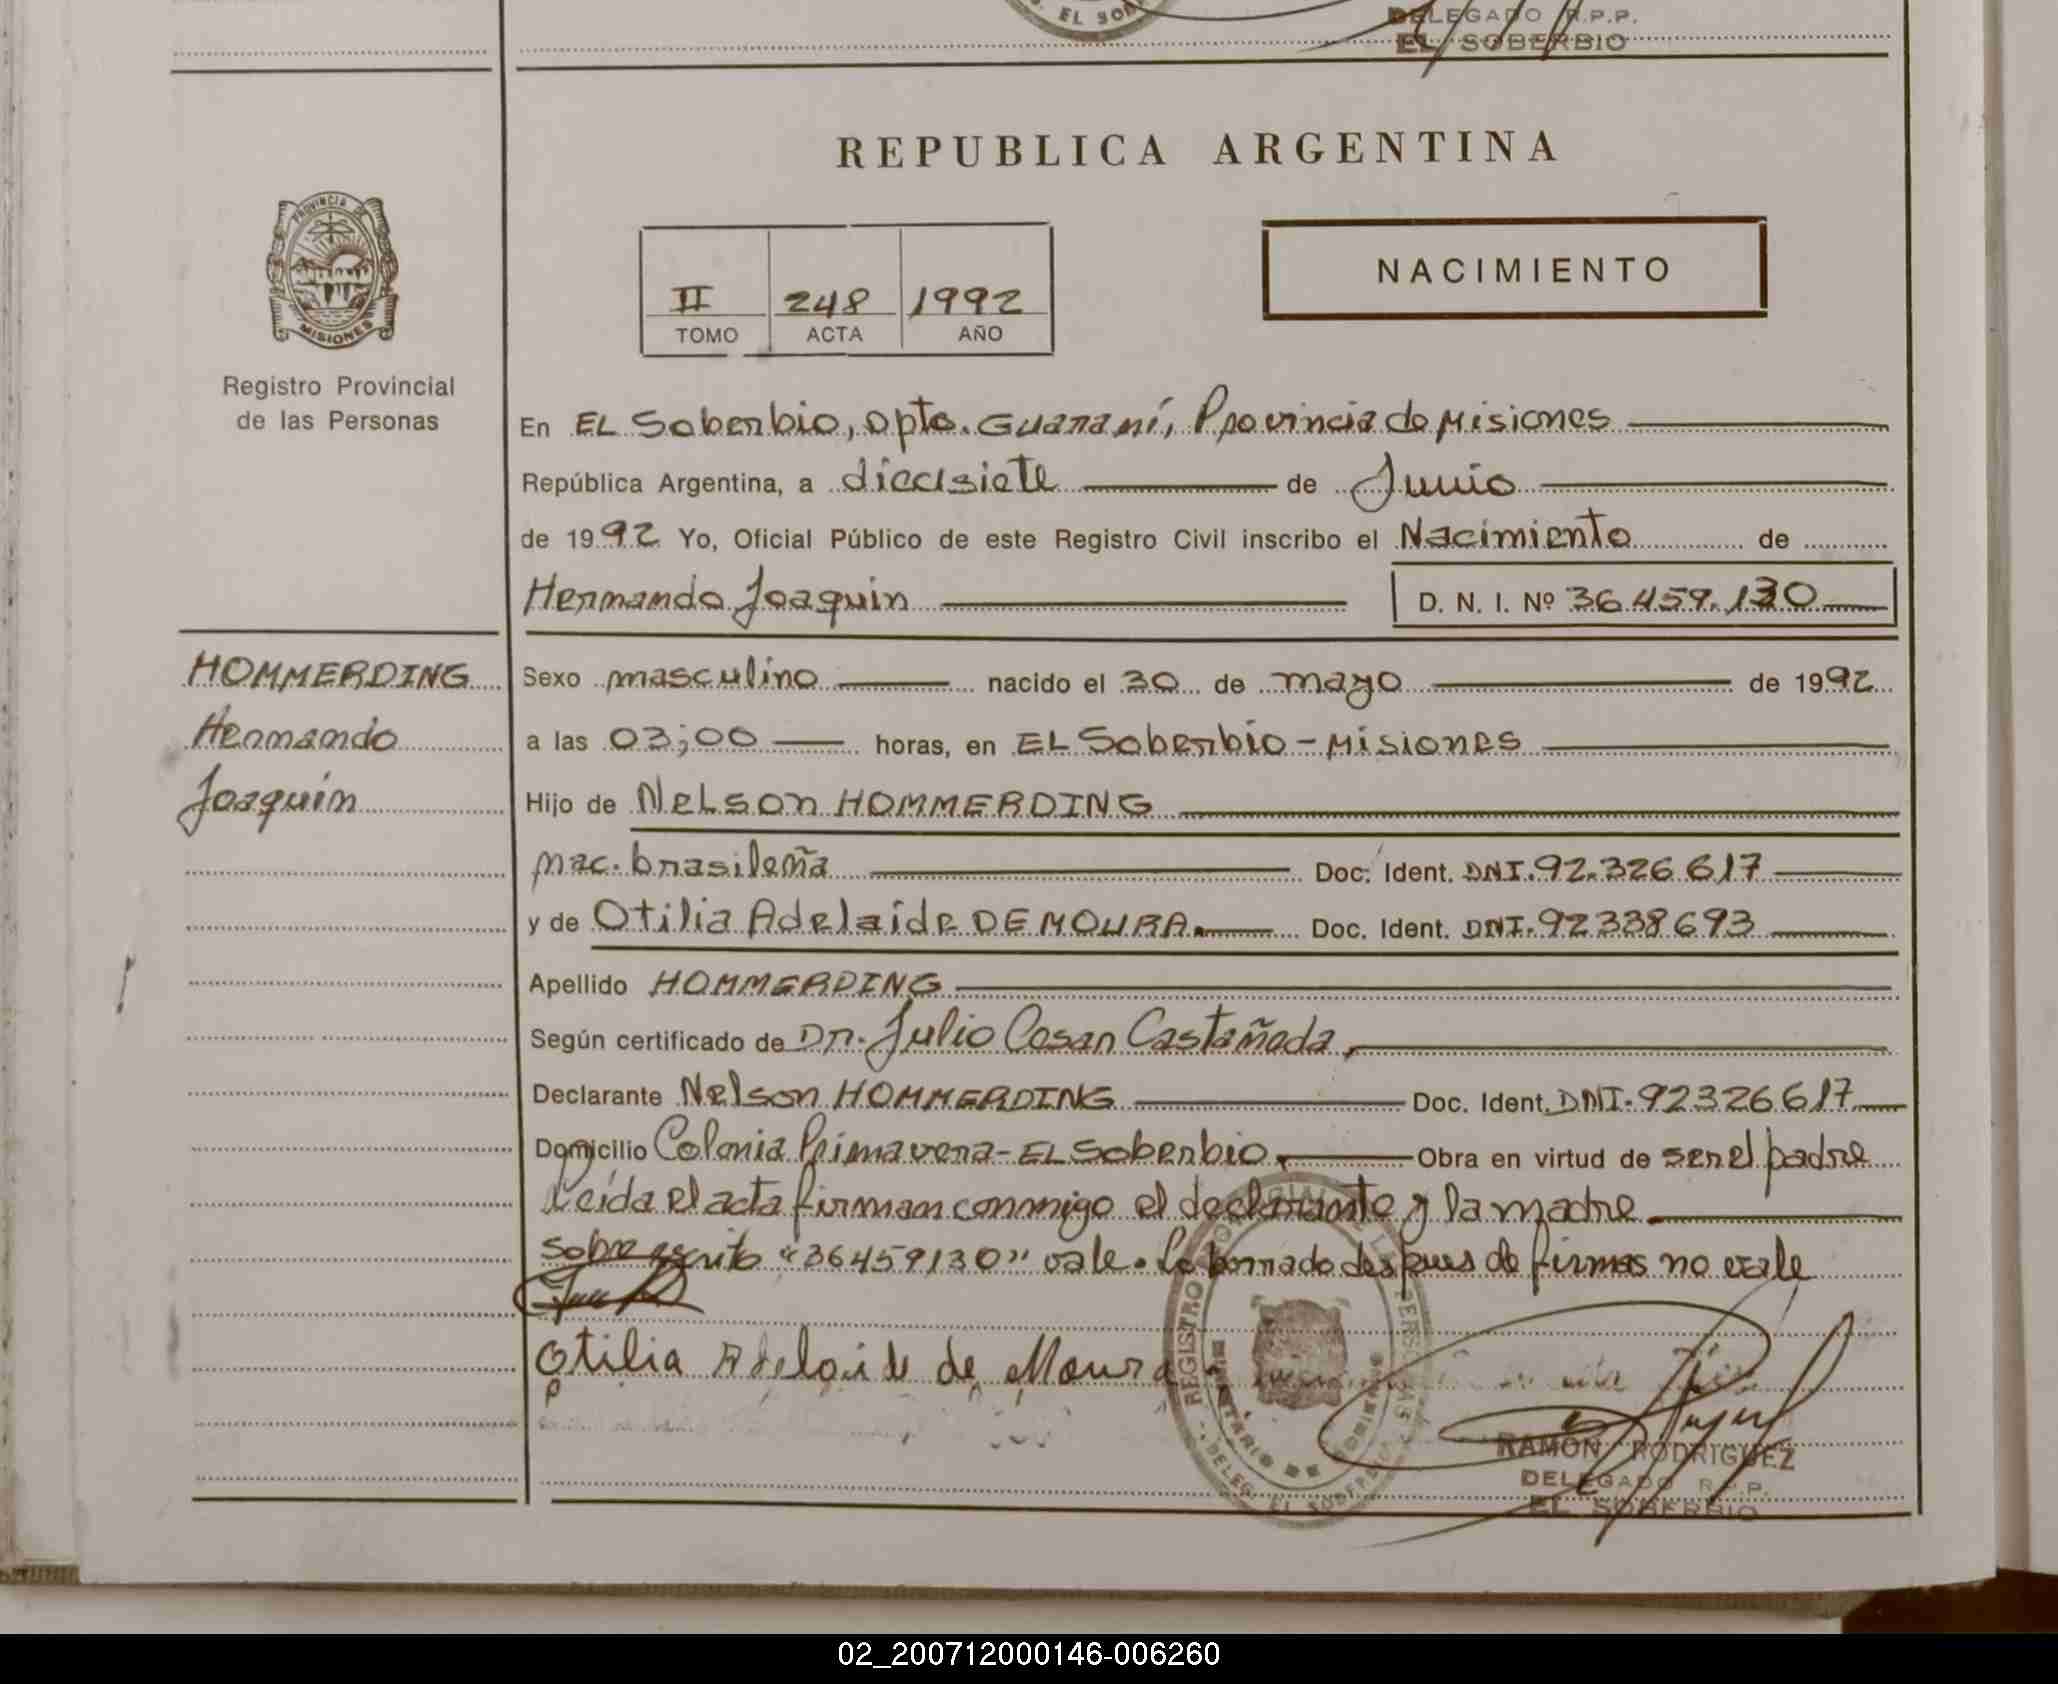 EL SOBERBIO
DELEGADO R.P.P.
EL SOBERBIO
REPUBLICA ARGENTINA
PROVINCIA DE
MISIONES
Registro Provincial
de las Personas
II 248 1992
TOMO ACTA AÑO
NACIMIENTO
En EL Soberbio, Dpto. Guaraní, Provincia de Misiones
República Argentina, a diecisiete de Junio
de 1992 Yo, Oficial Público de este Registro Civil inscribo el Nacimiento de
Hernando Joaquin D. N. I. Nº 36.459.130
HOMMERDING
Hernando
Joaquin
Sexo masculino nacido el 30 de mayo de 1992
a las 03;00 horas, en EL Soberbio - Misiones
Hijo de Nelson HOMMERDING
nac. brasileña Doc. Ident. DNI. 92.326.617
y de Otilia Adelaide DE MOURA. Doc. Ident. DNI. 92338693
Apellido HOMMERDING
Según certificado de Dr. Julio Cesar Castañeda,
Declarante Nelson HOMMERDING Doc. Ident. DNI. 92326617
Domicilio Colonia Primavera - EL Soberbio, Obra en virtud de ser el padre
Leída el acta firman conmigo el declarante y la madre
sobre escrito "36459130" vale. Lo borrado despues de firmas no vale
Otilia Adelaide de Moura
RAMON RODRIGUEZ
DELEGADO R.P.P.
EL SOBERBIO
02_200712000146-006260